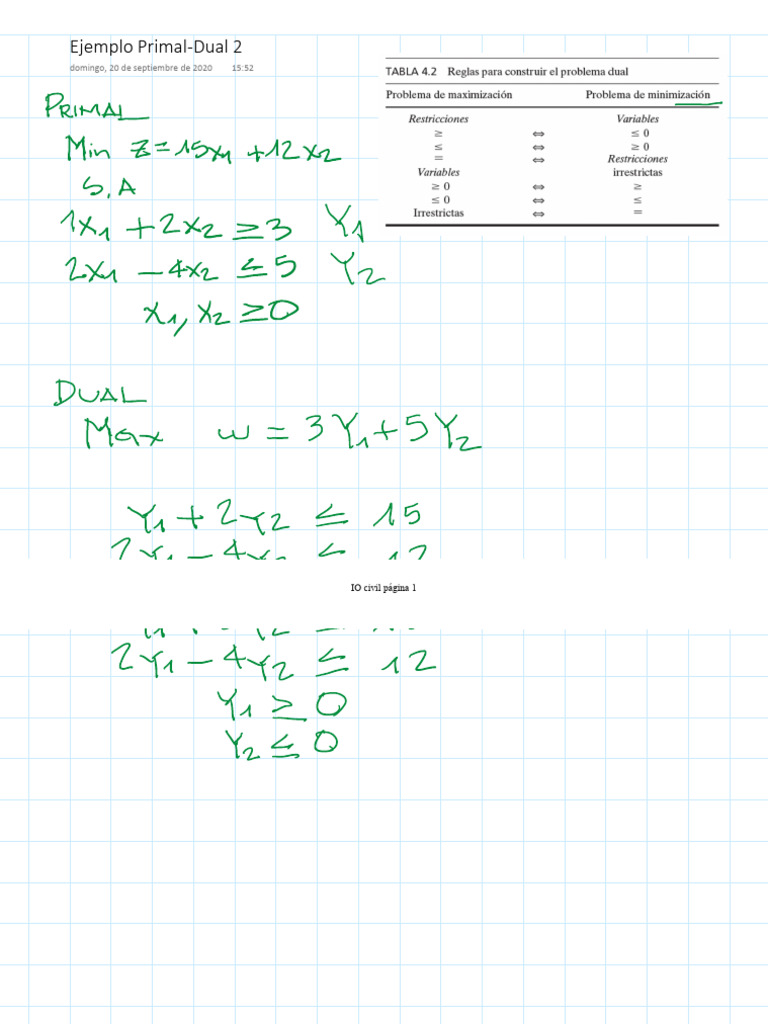 Ejemplo Primal-Dual 2
domingo, 20 de septiembre de 2020 15:52
TABLA 4.2 Reglas para construir el problema dual
Problema de maximización Problema de minimización
Restricciones Variables
≥ ⇔ ≤ 0
≤ ⇔ ≥ 0
= ⇔ Restricciones
Variables irrestrictas
≥ 0 ⇔ ≥
≤ 0 ⇔ ≤
Irrestrictas ⇔ =
PRIMAL
Min Z=15x1+12x2
S,A
1x1+2x2≥3 Y1
2x1-4x2≤5 Y2
x1, x2≥0
DUAL
Max w=3Y1+5Y2
Y1+2Y2≤15
2Y1-4Y2≤12
IO civil página 1
2Y1-4Y2≤12
Y1≥0
Y2≤0